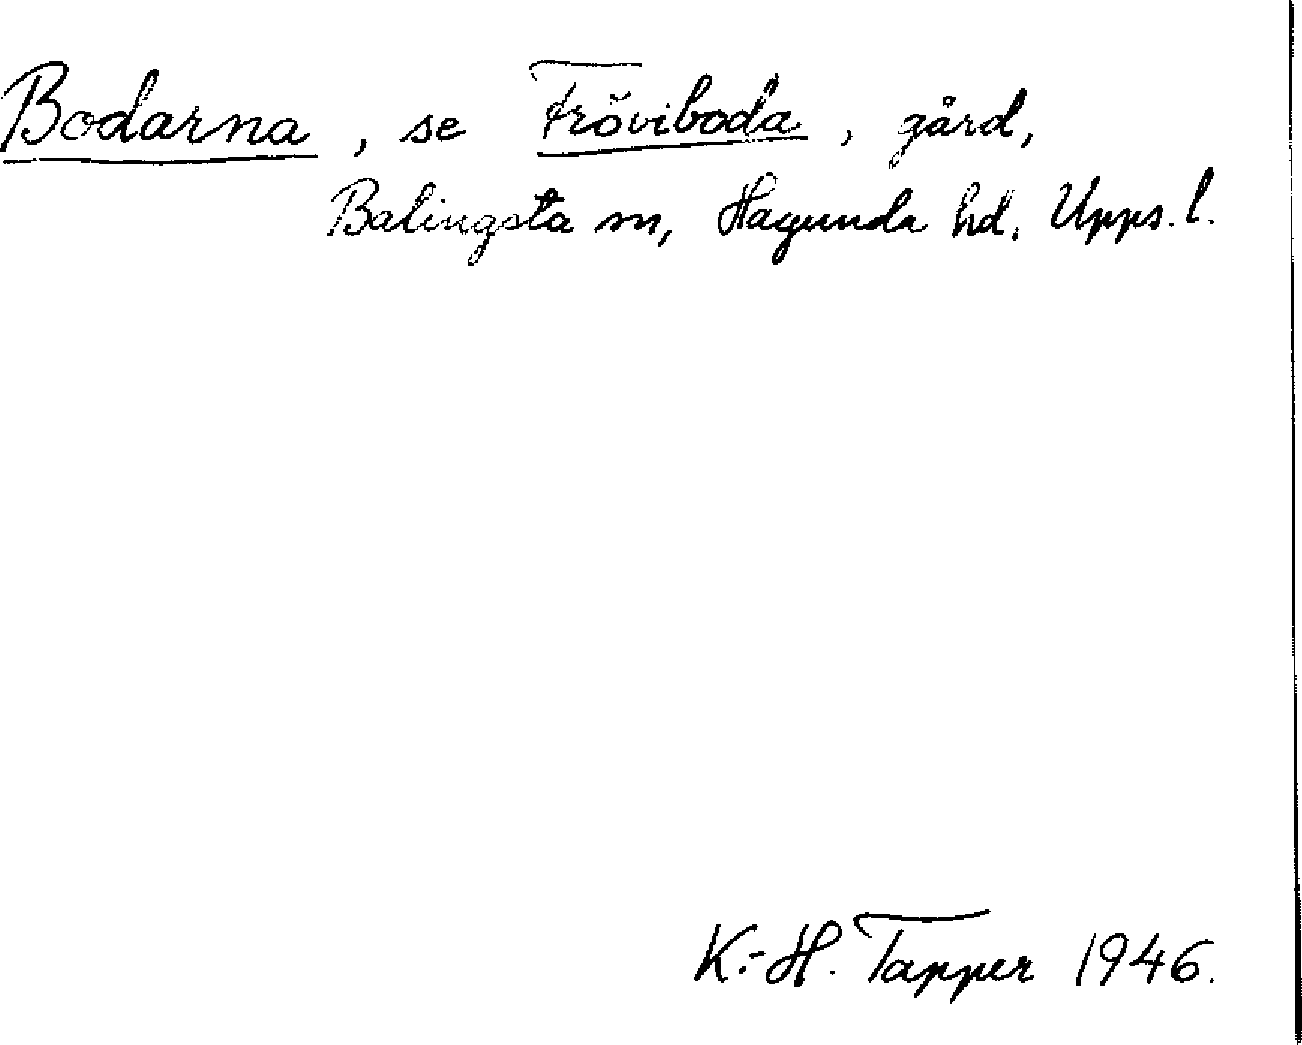 Bodarna, se Fröviboda, gård,
Balingsta sn, Hagunda hd. Upps. l.
K.-H. Tapper 1946.